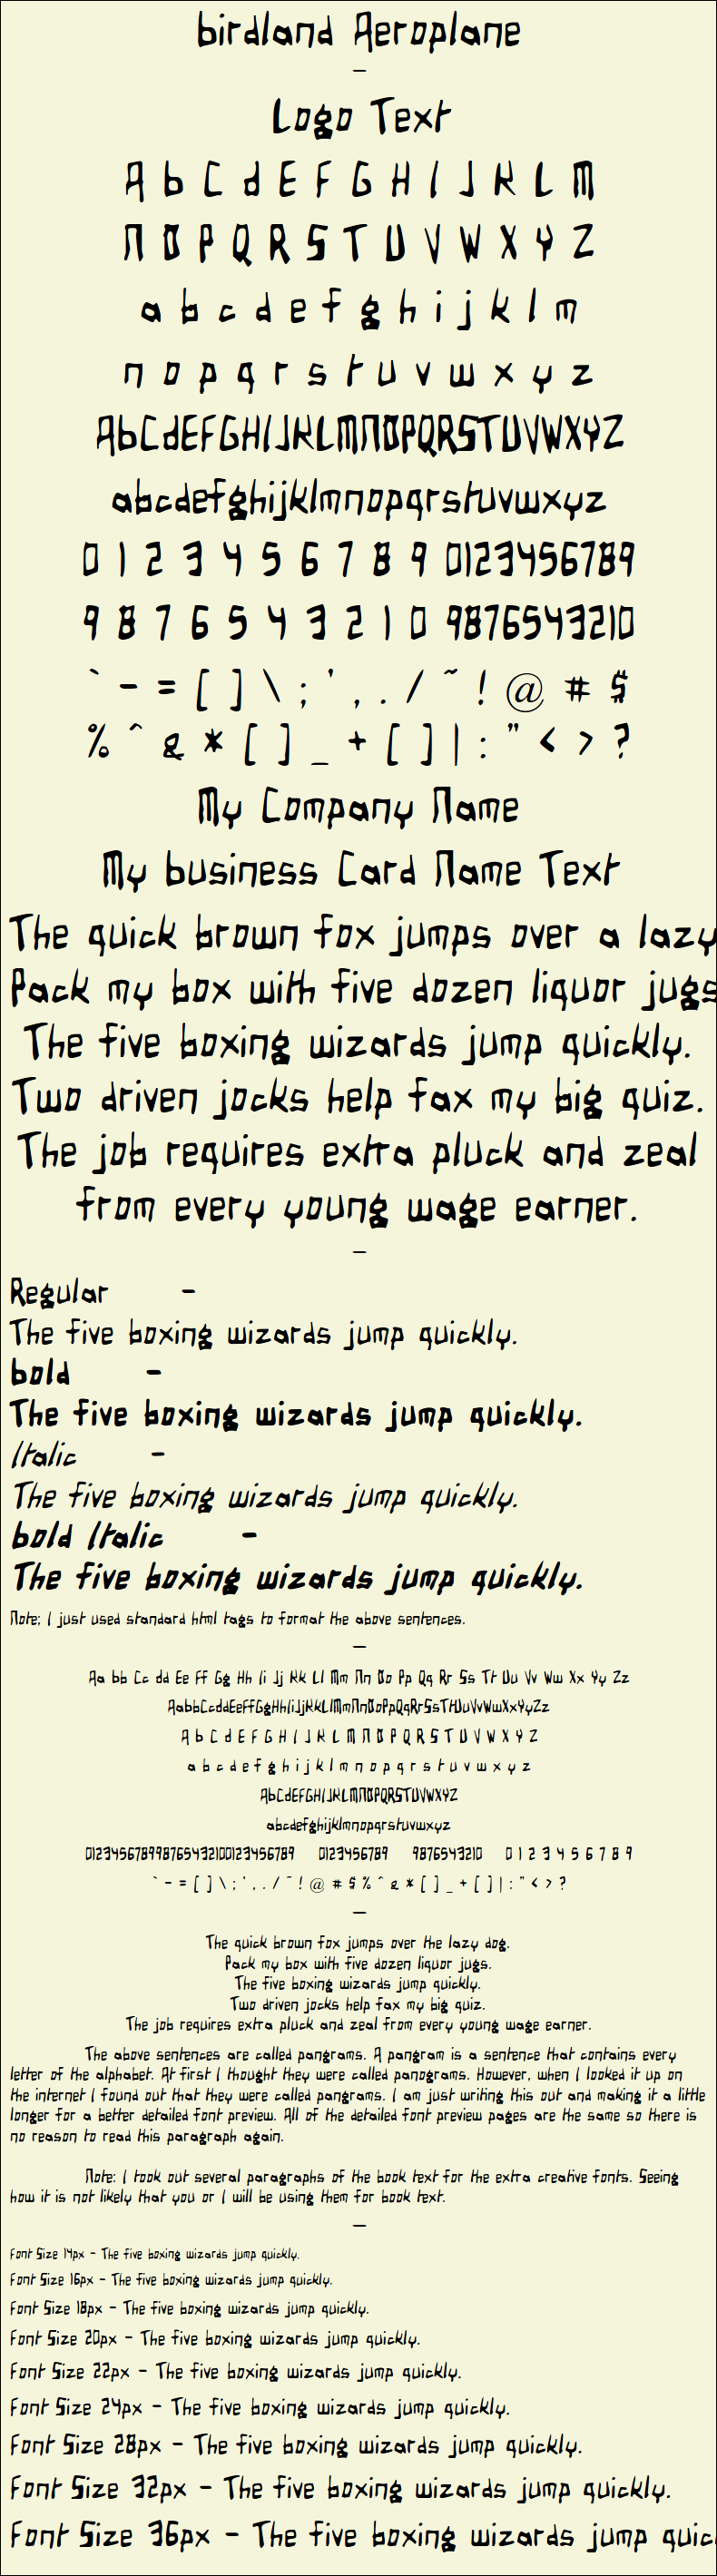 birdland Aeroplane
—
Logo Text
A b C d E F G H I J K L M
N O P Q R S T U V W X Y Z
a b c d e f g h i j k l m
n o p q r s t u v w x y z
AbCdEFGHIJKLMNOPQRSTUVWXYZ
abcdefghijklmnopqrstuvwxyz
0 1 2 3 4 5 6 7 8 9 0123456789
9 8 7 6 5 4 3 2 1 0 9876543210
` - = [ ] \ ; ' , . / ~ ! @ # $
% ^ & * [ ] _ + [ ] | : " < > ?
My Company Name
My business Card Name Text
The quick brown fox jumps over a lazy
Pack my box with five dozen liquor jugs
The five boxing wizards jump quickly.
Two driven jocks help fax my big quiz.
The job requires extra pluck and zeal
from every young wage earner.
—
Regular -
The five boxing wizards jump quickly.
bold -
The five boxing wizards jump quickly.
Italic -
The five boxing wizards jump quickly.
bold Italic -
The five boxing wizards jump quickly.
Note; I just used standard html tags to format the above sentences.
—
Aa bb Cc dd Ee Ff Gg Hh Ii Jj Kk Ll Mm Nn Oo Pp Qq Rr Ss Tt Uu Vv Ww Xx Yy Zz
AabbCcddEeFfGgHhIiJjKkLlMmNnOoPpQqRrSsTtUuVvWwXxYyZz
A b C d E F G H I J K L M N O P Q R S T U V W X Y Z
a b c d e f g h i j k l m n o p q r s t u v w x y z
AbCdEFGHIJKLMNOPQRSTUVWXYZ
abcdefghijklmnopqrstuvwxyz
012345678998765432100123456789 0123456789 9876543210 0 1 2 3 4 5 6 7 8 9
` - = [ ] \ ; ' , . / ~ ! @ # $ % ^ & * [ ] _ + [ ] | : " < > ?
—
The quick brown fox jumps over the lazy dog.
Pack my box with five dozen liquor jugs.
The five boxing wizards jump quickly.
Two driven jocks help fax my big quiz.
The job requires extra pluck and zeal from every young wage earner.
The above sentences are called pangrams. A pangram is a sentence that contains every
letter of the alphabet. At first I thought they were called panograms. However, when I looked it up on
the internet I found out that they were called pangrams. I am just writing this out and making it a little
longer for a better detailed font preview. All of the detailed font preview pages are the same so there is
no reason to read this paragraph again.
Note: I took out several paragraphs of the book text for the extra creative fonts. Seeing
how it is not likely that you or I will be using them for book text.
—
Font Size 14px - The five boxing wizards jump quickly.
Font Size 16px - The five boxing wizards jump quickly.
Font Size 18px - The five boxing wizards jump quickly.
Font Size 20px - The five boxing wizards jump quickly.
Font Size 22px - The five boxing wizards jump quickly.
Font Size 24px - The five boxing wizards jump quickly.
Font Size 28px - The five boxing wizards jump quickly.
Font Size 32px - The five boxing wizards jump quickly.
Font Size 36px - The five boxing wizards jump quic